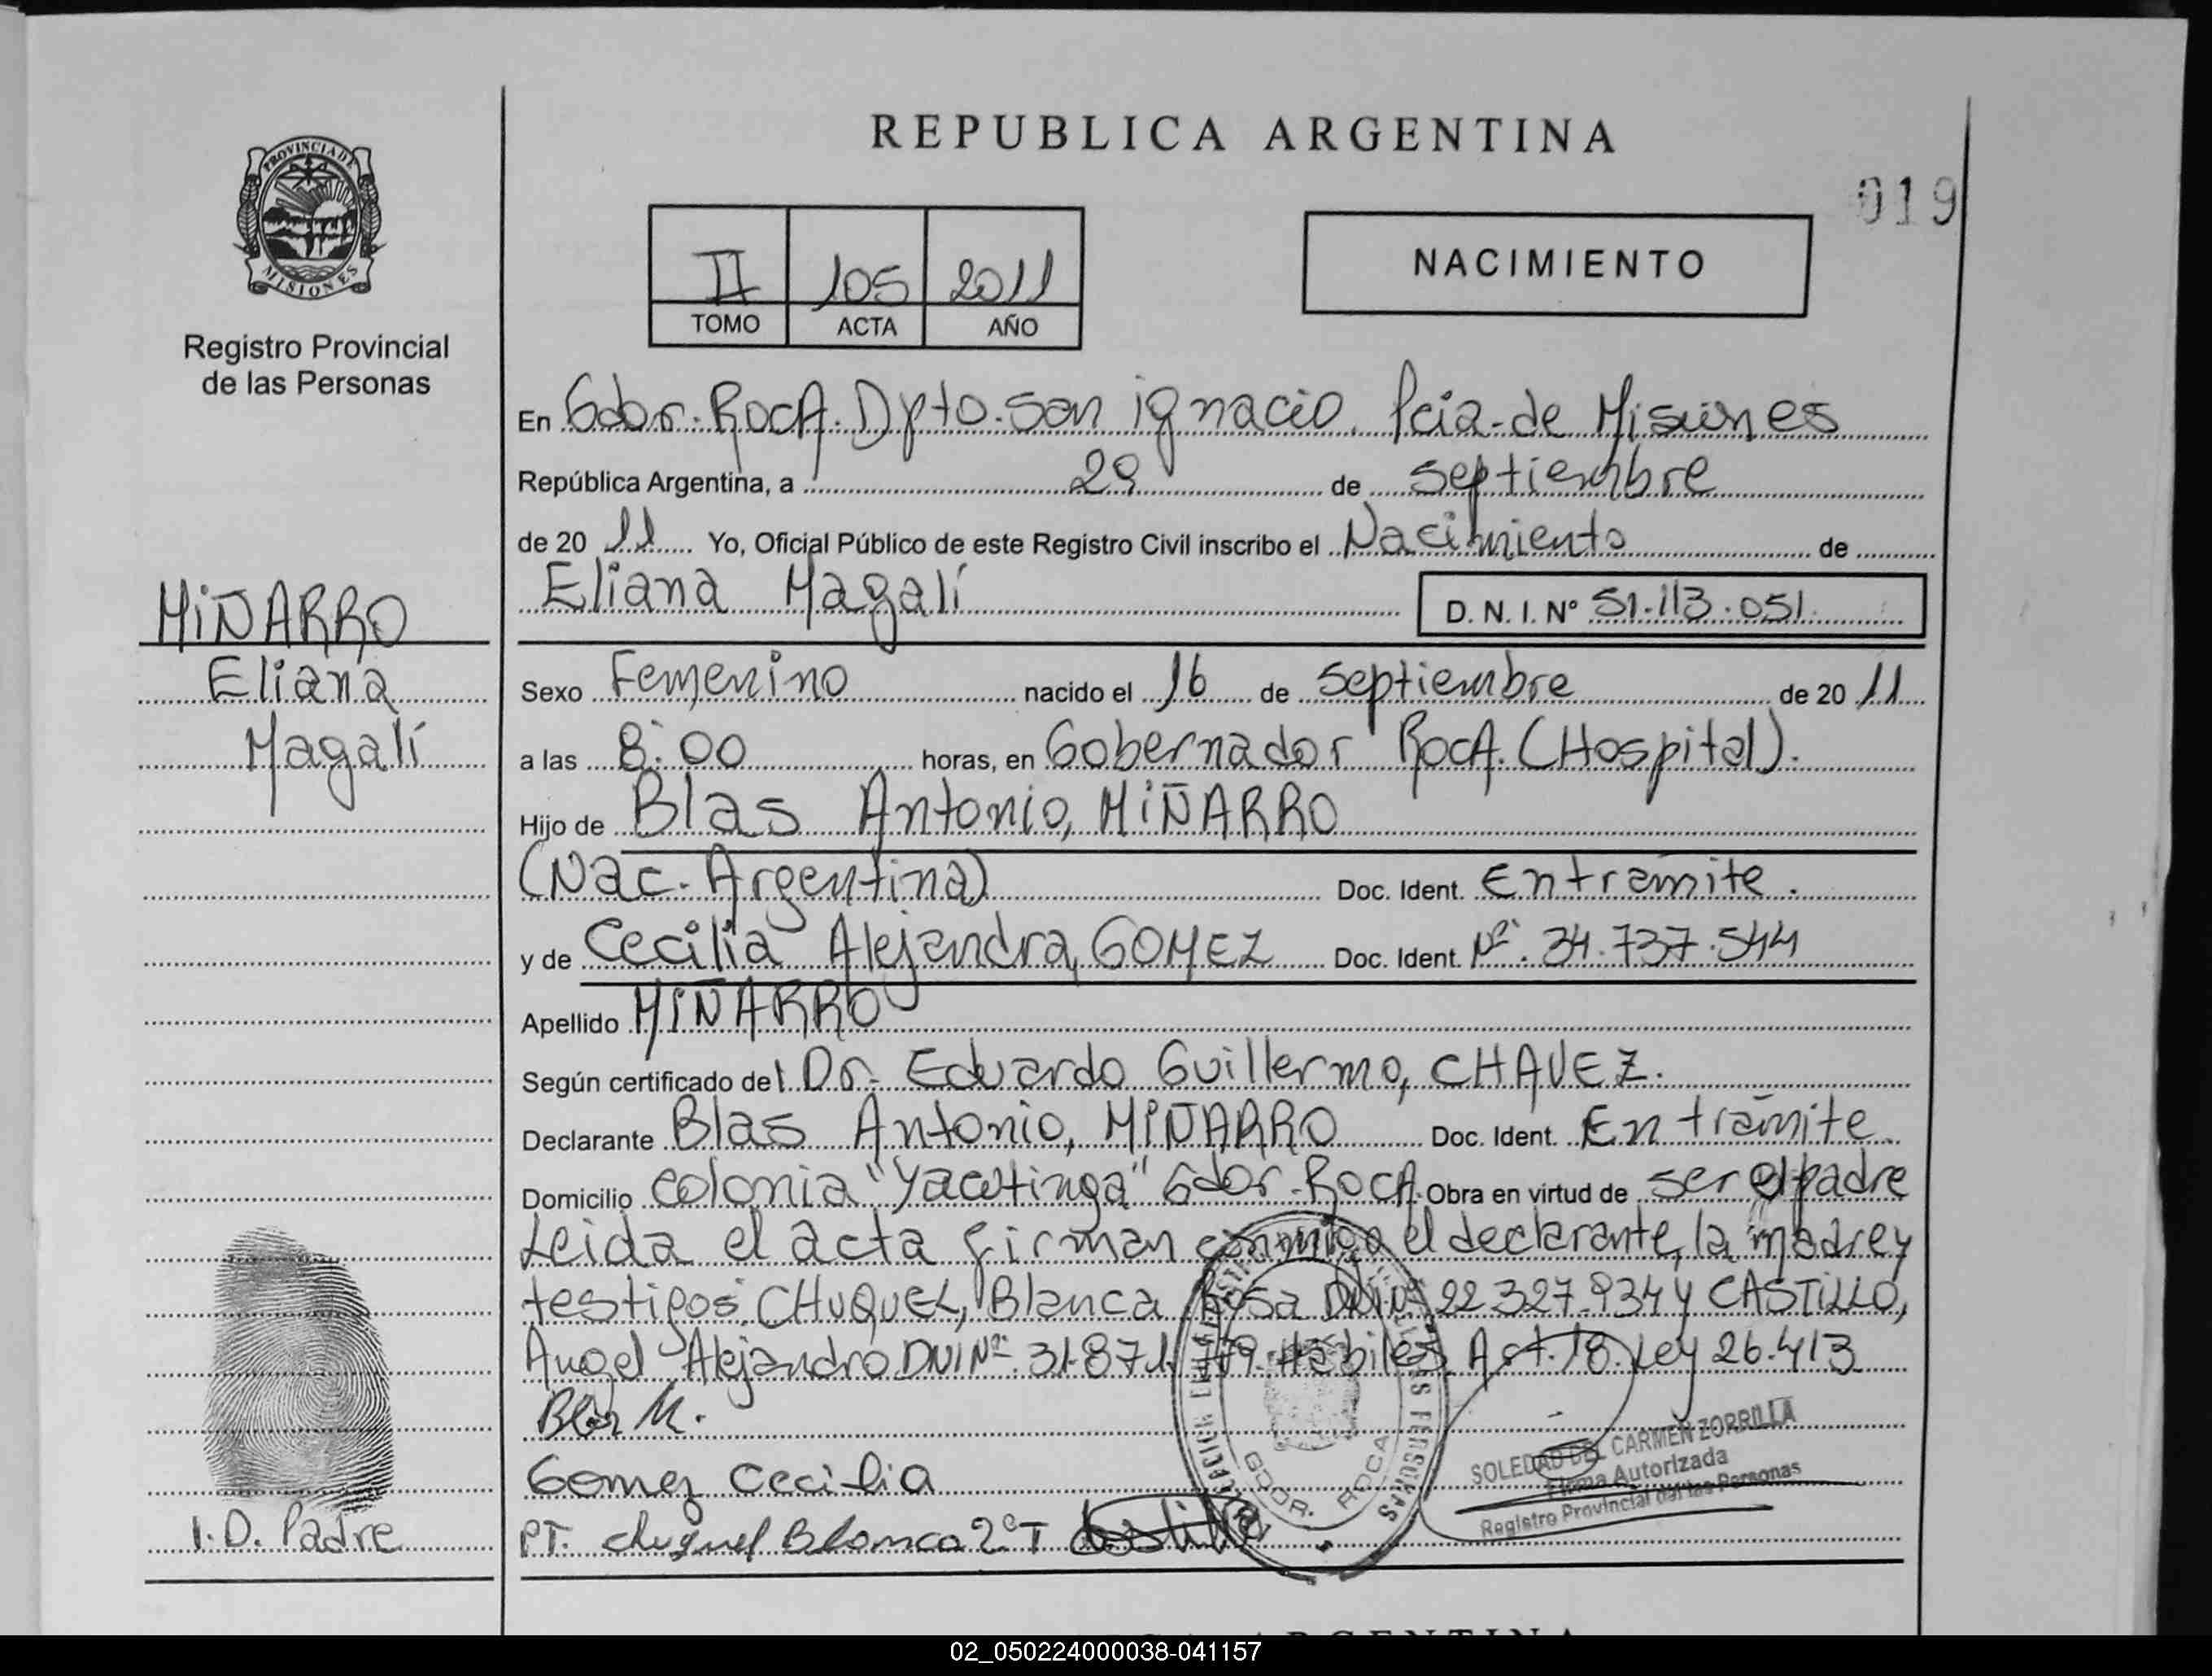 REPUBLICA ARGENTINA
019
PROVINCIA DE
MISIONES
Registro Provincial
de las Personas
II 105 2011
TOMO ACTA AÑO
NACIMIENTO
En Gdor. Roca. Dpto. San ignacio. Pcia. de Misiones
República Argentina, a 29 de septiembre
de 20 11 Yo, Oficial Público de este Registro Civil inscribo el Nacimiento de
Eliana Magalí D. N. I. Nº 51.113.051
MIÑARRO
Eliana
Magalí
Sexo Femenino nacido el 16 de septiembre de 20 11
a las 8:00 horas, en Gobernador Roca. (Hospital).
Hijo de Blas Antonio, MIÑARRO
(Nac. Argentina) Doc. Ident. En tramite.
y de Cecilia Alejandra, GOMEZ Doc. Ident. Nº. 34.737.544
Apellido MIÑARRO
Según certificado del Dr. Eduardo Guillermo, CHAVEZ.
Declarante Blas Antonio, MIÑARRO Doc. Ident. En tramite.
Domicilio colonia "Yacutinga" Gdor. Roca Obra en virtud de ser el padre
Leida el acta firman conmigo el declarante, la madre y
testigos: CHUQUEL, Blanca Rosa DNI Nº 22.327.934 y CASTILLO,
Angel Alejandro DNI Nº. 31.871. Habiles Art. 18. Ley 26.413
Blas M.
Gomez Cecilia
PT. chuquel Blanca 2ºT Castillo
I.D. Padre
GDOR. ROCA
SOLEDAD DEL CARMEN ZORRILLA
Firma Autorizada
Registro Provincial de las Personas
02_050224000038-041157